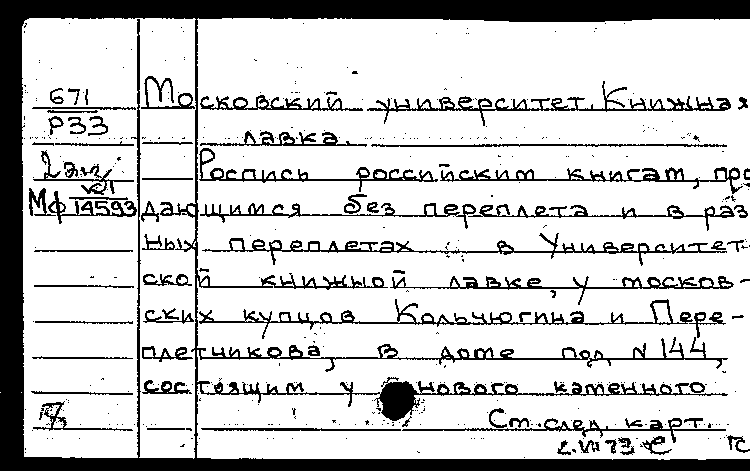 671
Р33
2 экз
Мф 14593
Московский университет. Книжная
лавка.
Роспись российским книгам, про
дающимся без переплета и в раз
ных переплетах в Университет-
ской книжной лавке, у москов-
ских купцов Кольчюгина и Пере-
плетчикова, в доме под N 144,
состоящим у нового каменного
См. след. карт.
2.VII 73